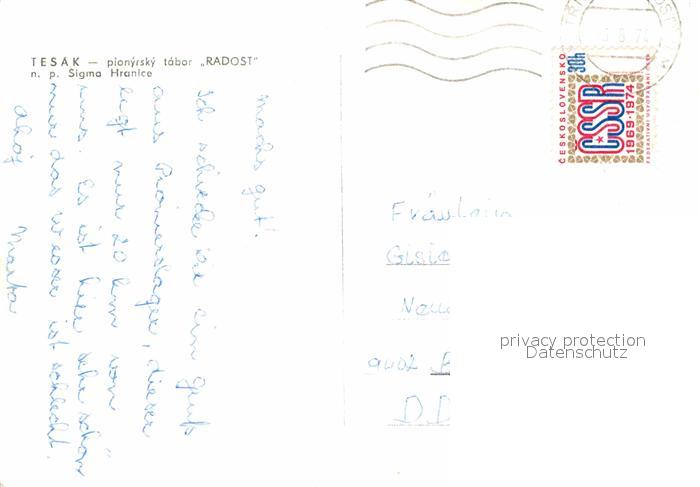 TESÁK — pionýrský tábor „RADOST"
n. p. Sigma Hranice
machs gut!
Ich schicke dir ein Gruß
aus Pionierslager, dieser
liegt nur 20 km von
uns. Es ist hier sehr schön
nur das Wetter ist schlecht.
ahoj
Marta
Fräulein
ČESKOSLOVENSKO
30h
ČSSR
1969-1974
FEDERATIVNÍ USPOŘÁDÁNÍ ČSSR
privacy protection
Datenschutz